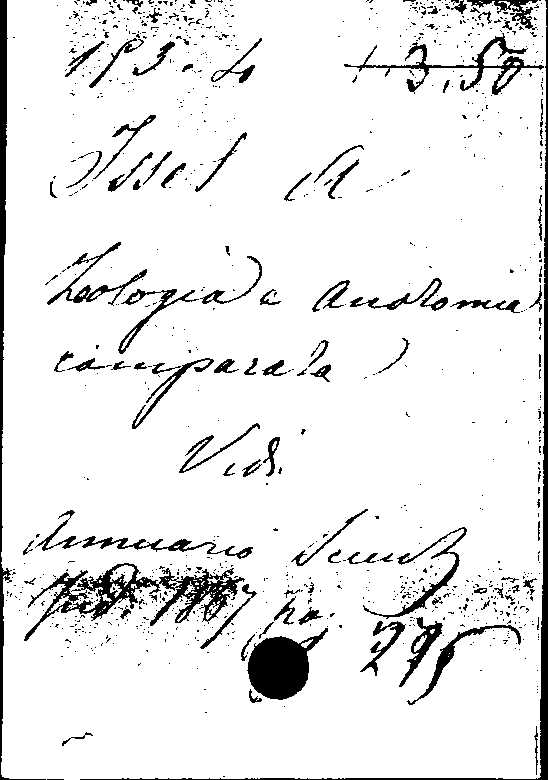 195.4 1.3,50
Issel A
Zoologia e Anatomia
comparata
Vedi
Annuario Scient
Ind. 1867 pag. 295